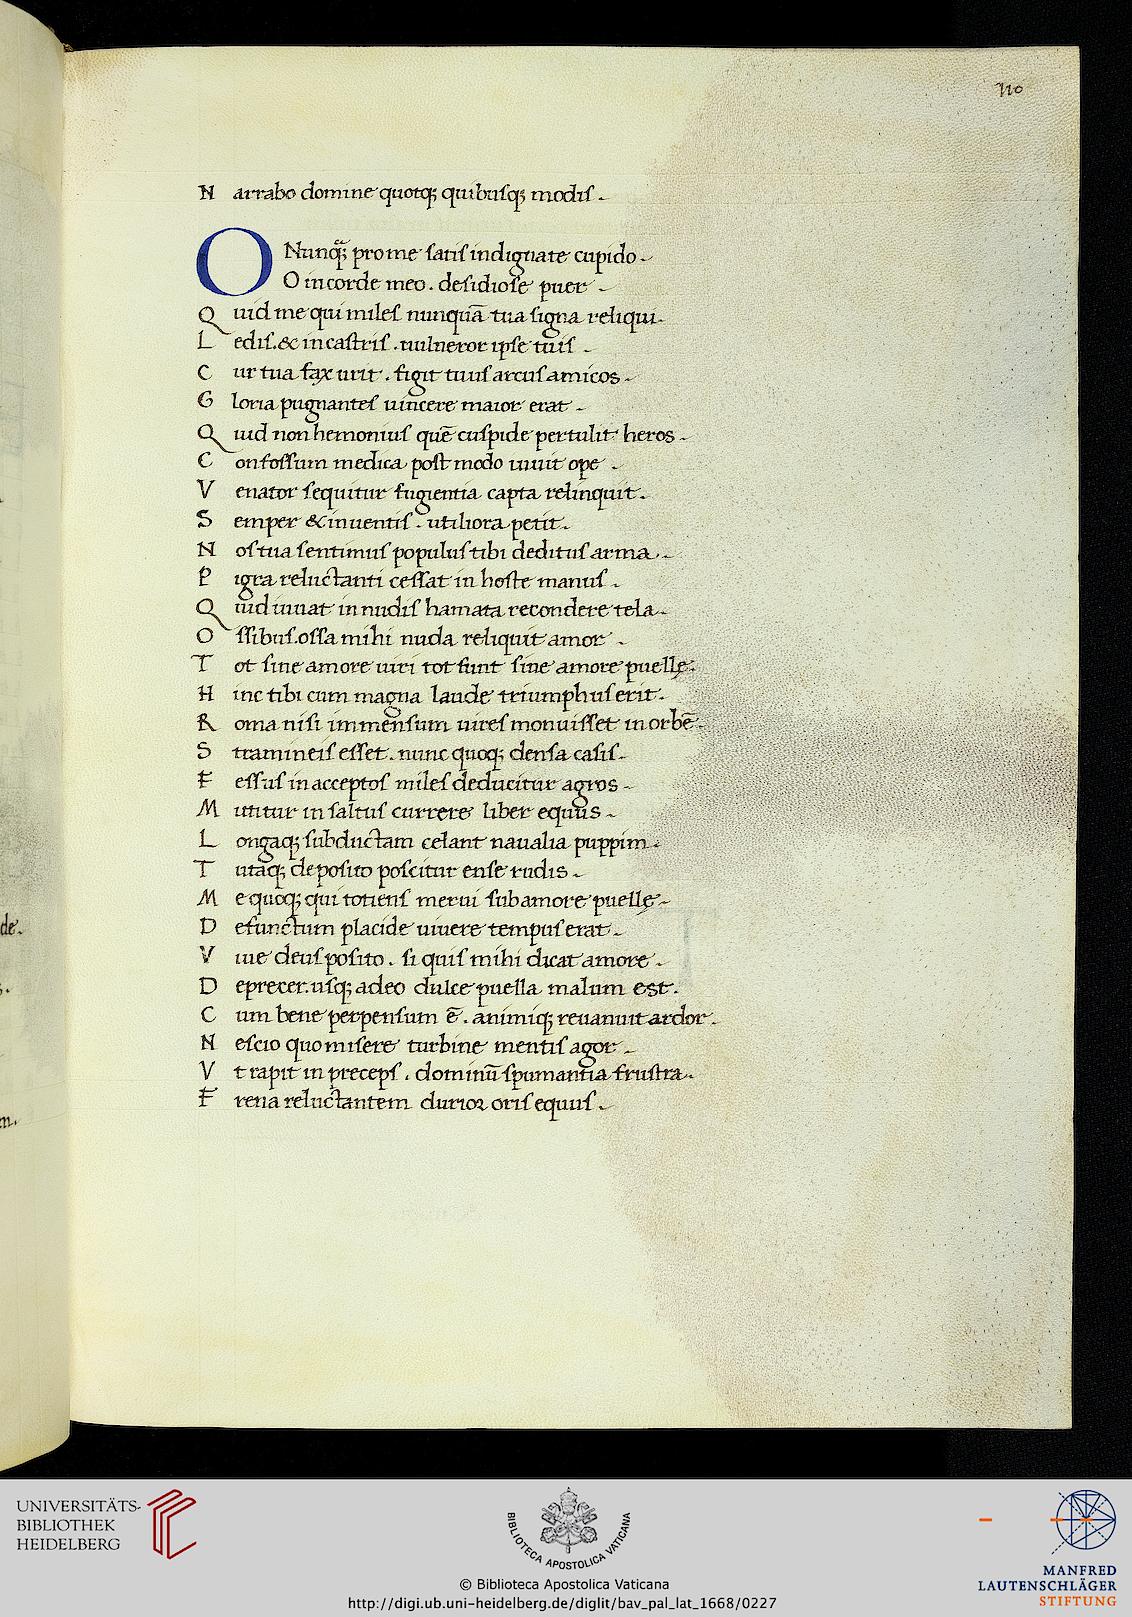 110
N arrabo domine quotq; quibusq; modis.
O Nunq̃; pro me satis indignate cupido.
O in corde meo. desidiose puer.
Q uid me qui miles nunquā tua signa reliqui.
L edis. & in castris. uulneror ipse tuis.
C ur tua fax urit. figit tuus arcus amicos.
G loria pugnantes uincere maior erat.
Q uid non hemonius quē cuspide pertulit heros.
C onfossum medica post modo uiuit ope.
V enator sequitur fugientia capta relinquit.
S emper & inuentis. utiliora petit.
N os tua sentimus populus tibi deditus arma.
P igra reluctanti cessat in hoste manus.
Q uid iuuat in nudis hamata recondere tela.
O ssibus. ossa mihi nuda reliquit amor.
T ot sine amore uiri tot sunt sine amore puellę.
H inc tibi cum magna laude triumphus erit.
R oma nisi immensum uires monuisset in orbē.
S tramineis esset. nunc quoq; densa casis.
F essus in acceptos miles deducitur agros.
M ittitur in saltus currere liber equus.
L ongaq; subductam celant naualia puppim.
T utaq; deposito poscitur ense rudis.
M e quoq; qui totiens merui sub amore puellę.
D efunctum placide uiuere tempus erat.
V iue deus posito. si quis mihi dicat amore.
D eprecer. usq; adeo dulce puella malum est.
C um bene perpensum ē. animiq; reuanuit ardor.
N escio quo misere turbine mentis agor.
V t rapit in preceps. dominū spumantia frustra.
F rena reluctantem durior oris equus.
de.
UNIVERSITÄTS-
BIBLIOTHEK
HEIDELBERG
BIBLIOTECA APOSTOLICA VATICANA
MANFRED
LAUTENSCHLÄGER
STIFTUNG
© Biblioteca Apostolica Vaticana
http://digi.ub.uni-heidelberg.de/diglit/bav_pal_lat_1668/0227